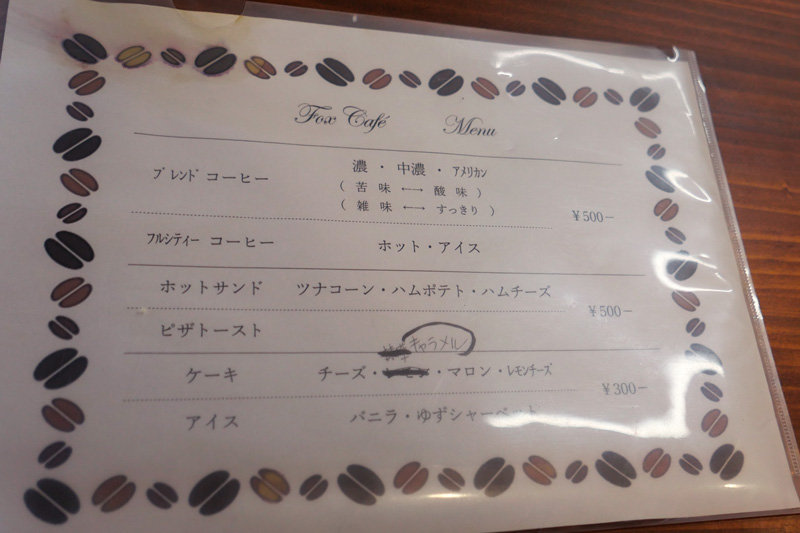 Fox Café Menu
ﾌﾞﾚﾝﾄﾞ コーヒー 濃・中濃・ｱﾒﾘｶﾝ
（苦味 ←→ 酸味）
（雑味 ←→ すっきり）
¥500−
ﾌﾙｼﾃｨｰ コーヒー ホット・アイス
ホットサンド ツナコーン・ハムポテト・ハムチーズ
¥500−
ピザトースト
キャラメル
ケーキ チーズ・・マロン・ﾚﾓﾝﾁｰｽﾞ
¥300−
アイス バニラ・ゆずシャーベット